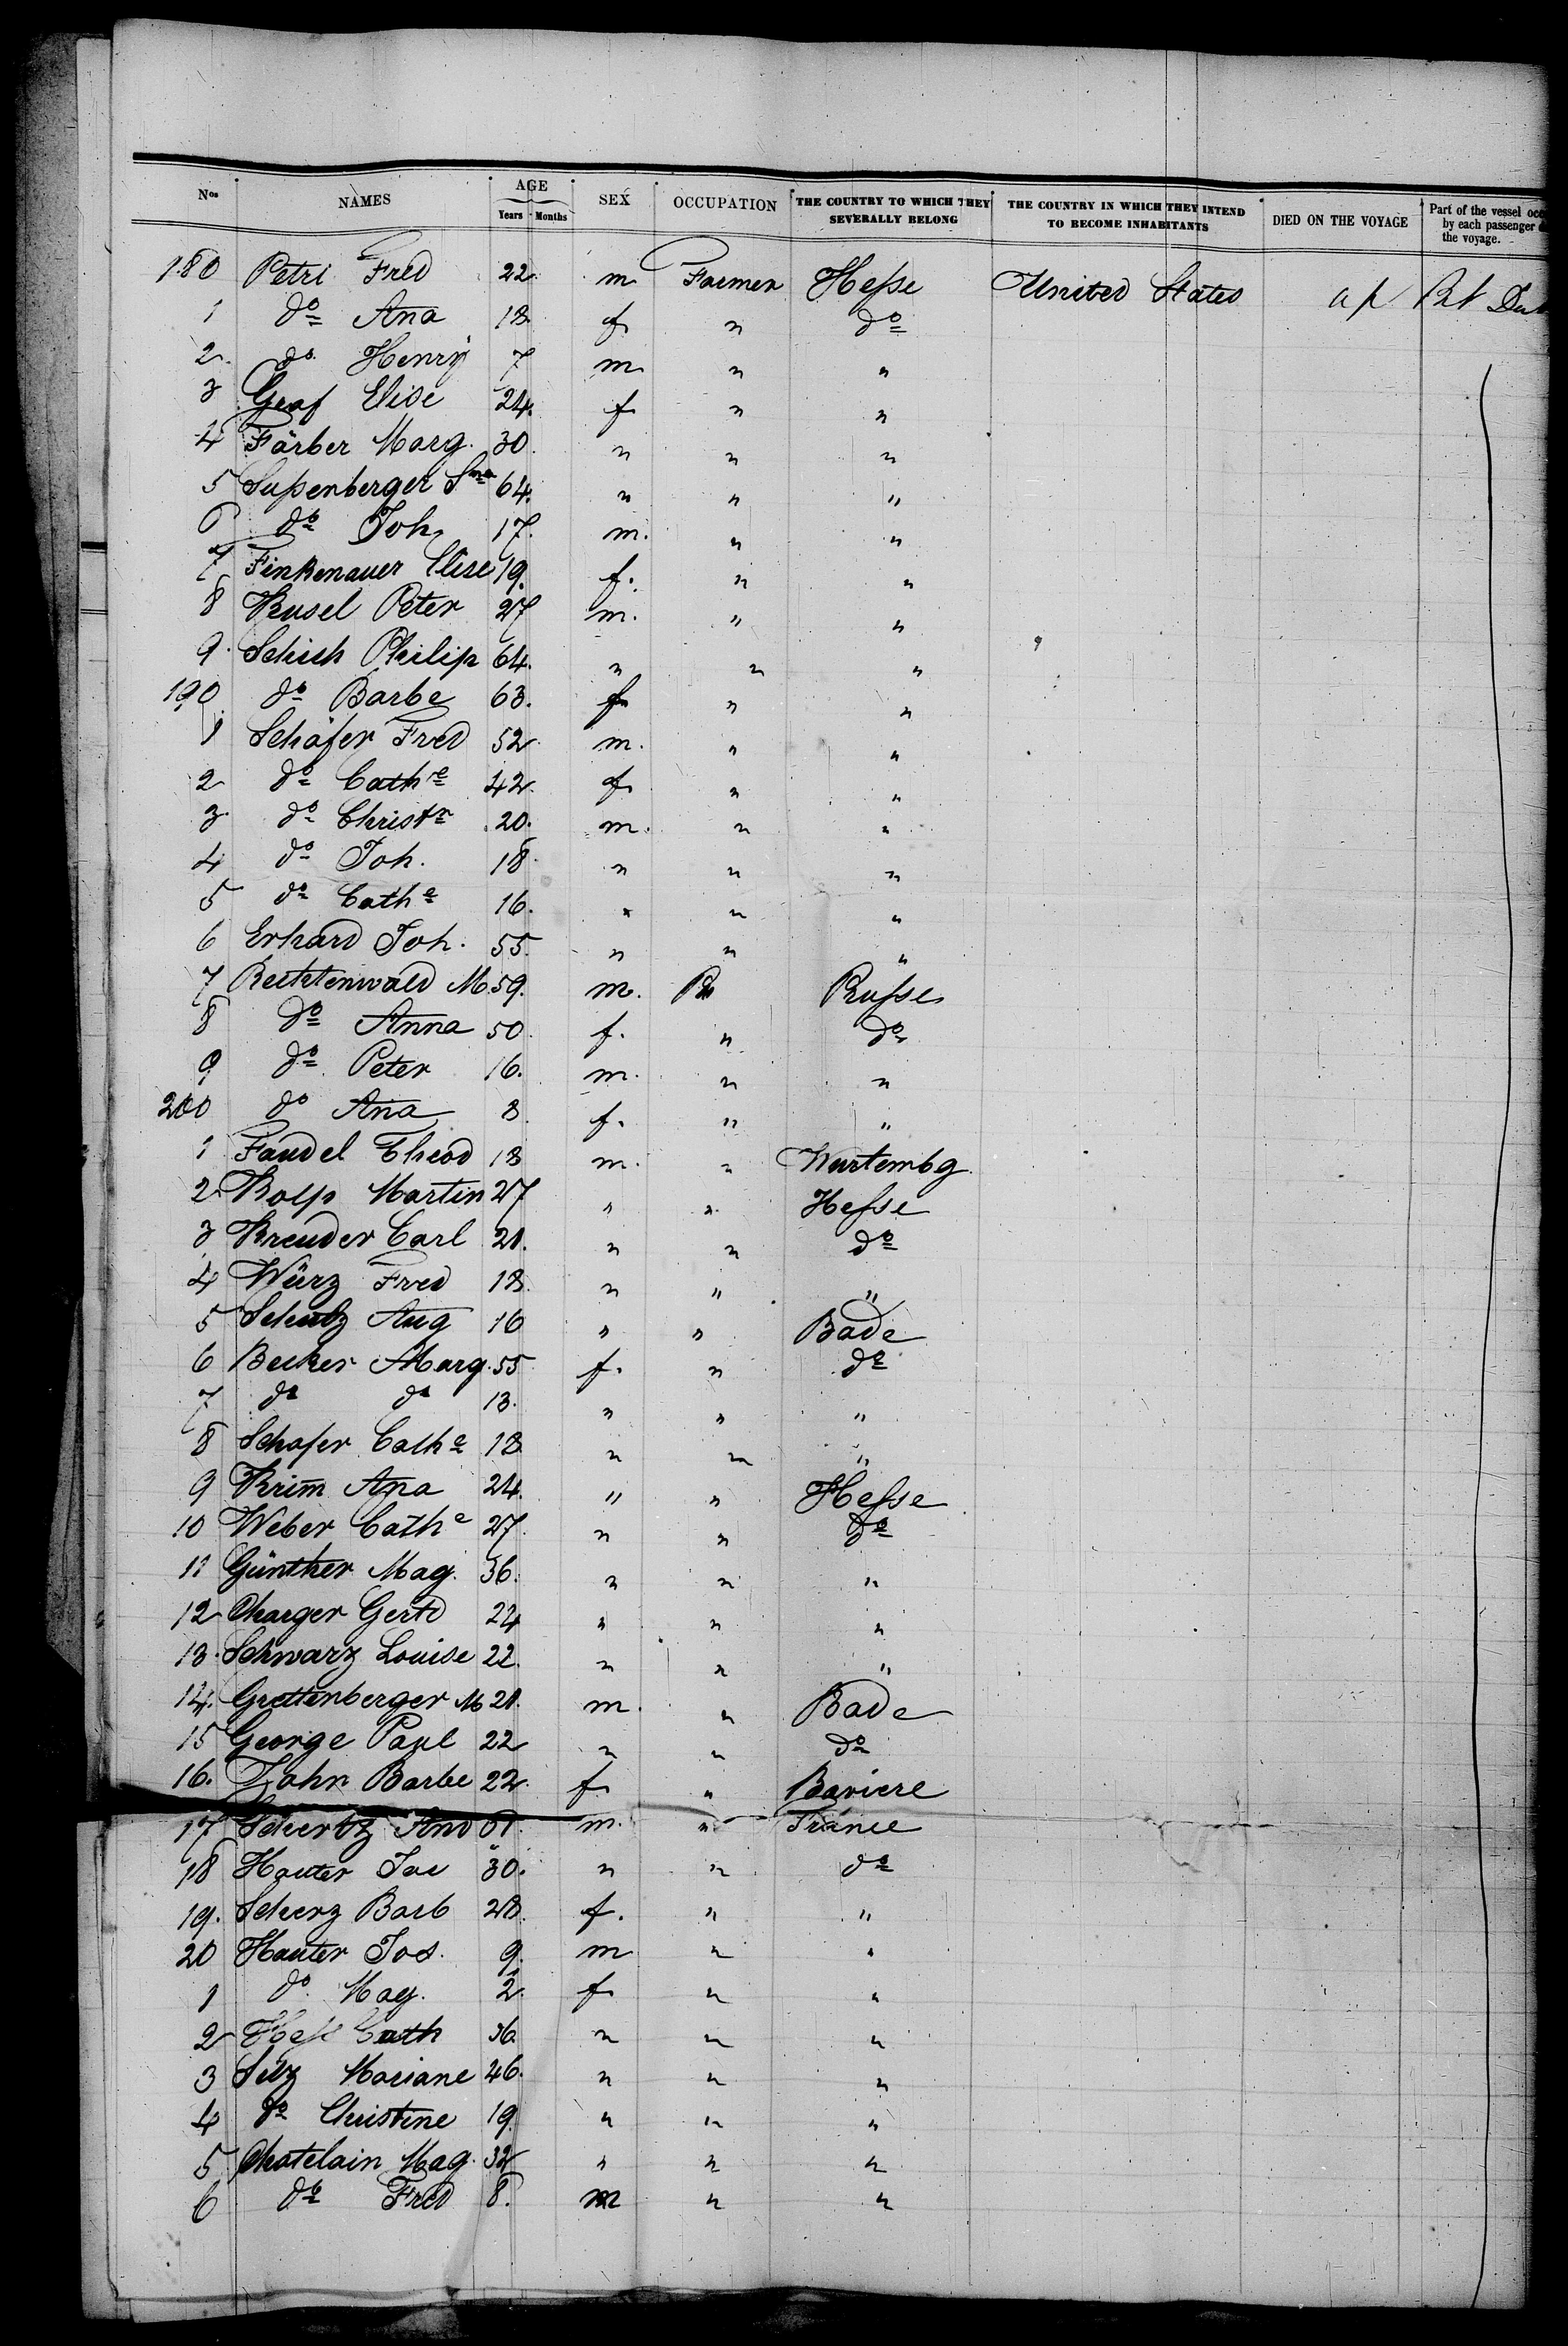 Nos NAMES AGE Years Months SEX OCCUPATION THE COUNTRY TO WHICH THEY SEVERALLY BELONG THE COUNTRY IN WHICH THEY INTEND TO BECOME INHABITANTS DIED ON THE VOYAGE Part of the vessel occ by each passenger the voyage.
180 Petri Fred 22 m Farmer Hesse United States
1 do Ana 18 f " do
2 do Henry 7 m " "
3 Graf Elise 24 f " "
4 Färber Marg. 30 " " "
5 Sussenberger 64 " " "
6 do Joh 17 m. " "
7 Finkenauer Elise 19 f. " "
8 Kusel Peter 27 m. " "
9 Schich Philip 64 " " "
190 do Barbe 63 f " "
1 Schäfer Fred 52 m. " "
2 do Cathe 42 f " "
3 do Christn 20 m. " "
4 do Joh. 18 " " "
5 do Cathe 16 " " "
6 Erhard Joh. 55 " " "
7 Rechtenwald M 59 m. Prusse
8 do Anna 50 f. " do
9 do Peter 16. m. " "
200 do Ana 8 f. " "
1 Faudel Theod 18 m. " Wurtembg
2 Kolp Martin 27 " " Hesse
3 Kreuder Carl 21. " " do
4 Würz Fred 18 " " "
5 Schutz Aug 16 " " Bade
6 Becker Marg. 55 f. " do
7 do do 13. " " "
8 Schafer Cathe 18 " " "
9 Krim̄ Ana 24. " " Hesse
10 Weber Cathe 27. " " do
11 Günther Mag. 36. " " "
12 Charger Gertd 24 " " "
13. Schwarz Louise 22. " " "
14. Grettenberger M 21. m. " Bade
15 George Paul 22 " " do
16. Zahn Barbe 22 f " Baviere
17 Schertz And m. " France
18 Hauter Jac 30. " " do
19. Scherz Barb 28. f. " "
20 Hauter Jos. 9. m " "
1 do Mag. 2. f " "
2 Hess Cath 36 " " "
3 Silz Mariane 46. " " "
4 do Christine 19. " " "
5 Chatelain Mag. 32 " " "
6 do Fred 8. m " "